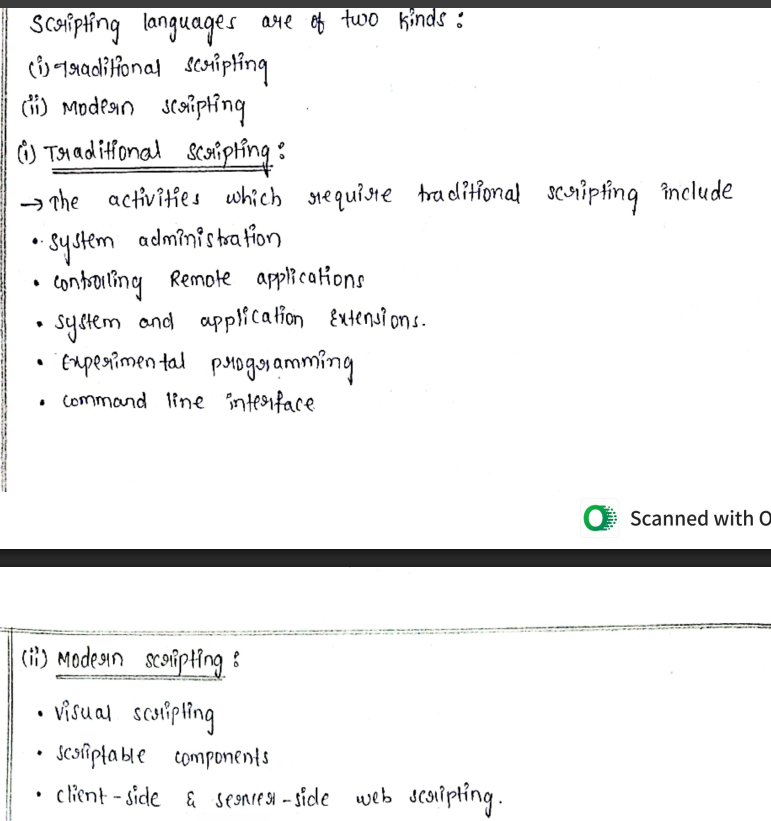 Scripting languages are of two kinds :
(i) Traditional scripting
(ii) Modern scripting
(i) Traditional Scripting :
→ The activities which require traditional scripting include
• System administration
• Controlling Remote applications
• System and application Extensions.
• Experimental programming
• Command line interface
Scanned with O
(ii) Modern scripting :
• Visual scripting
• Scriptable components
• Client-side & server-side web scripting.